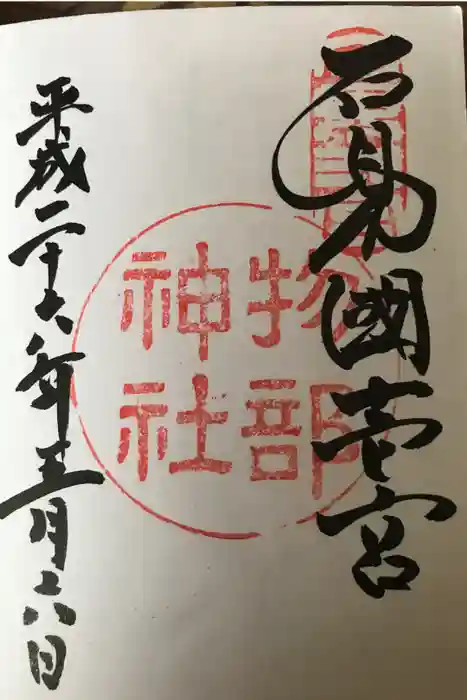 石見國壱宮
物部
神社
平成二十六年五月六日